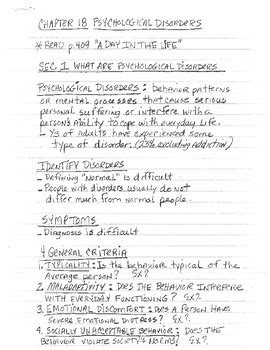 CHAPTER 18 PSYCHOLOGICAL DISORDERS
* READ p.409 "A DAY IN THE LIFE"
SEC. 1 WHAT ARE PSYCHOLOGICAL DISORDERS
PSYCHOLOGICAL DISORDERS: behavior patterns
or mental processes that cause serious
personal suffering or interfere with a
person's ability to cope with everyday life.
- 1/3 of adults have experienced some
type of disorder. (25% excluding addiction)
IDENTIFY DISORDERS
- Defining "Normal" is difficult
- People with disorders usually do not
differ much from normal people.
SYMPTOMS
- Diagnosis is difficult
4 GENERAL CRITERIA
1. TYPICALITY: Is the behavior typical of the
average person? EX?
2. MALADAPTIVITY: DOES THE BEHAVIOR INTERFERE
WITH EVERYDAY FUNCTIONING? EX?
3. EMOTIONAL DISCOMFORT: DOES A PERSON HAVE
SEVERE EMOTIONAL DISTRESS? EX?
4. SOCIALLY UNACCEPTABLE BEHAVIOR: DOES THE
BEHAVIOR VIOLATE SOCIETY'S NORMS? EX?